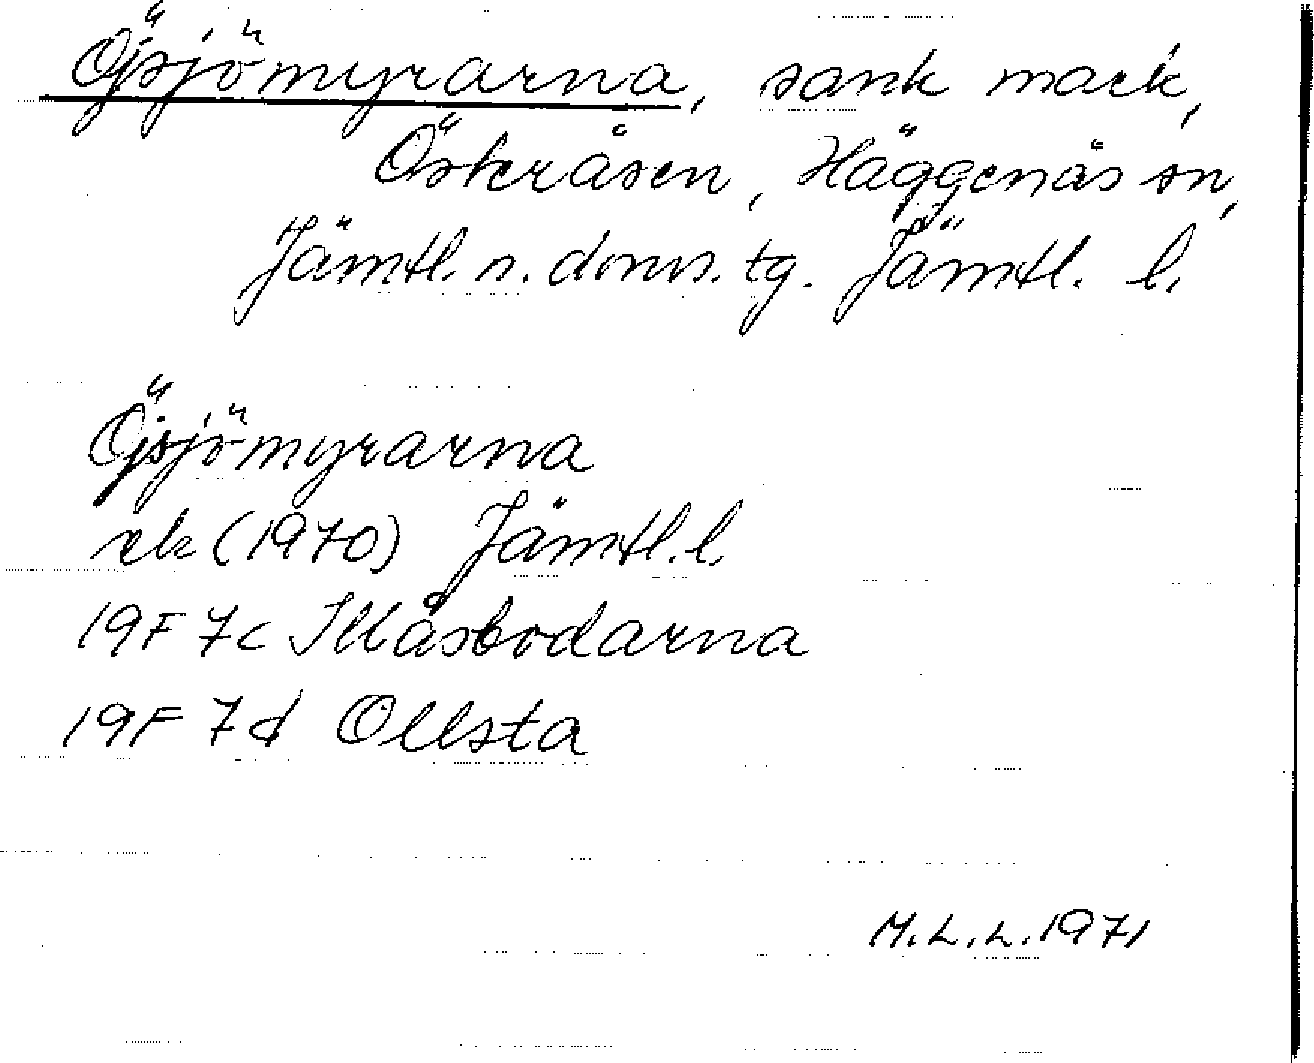 Öjsjömyrarna, sank mark,
Österåsen, Häggenås sn,
Jämtl. n. doms. tg. Jämtl. l.
Öjsjömyrarna
ek (1970) Jämtl. l.
19F 7c Illåsbodarna
19F 7d Ollsta
M.L.L. 1971